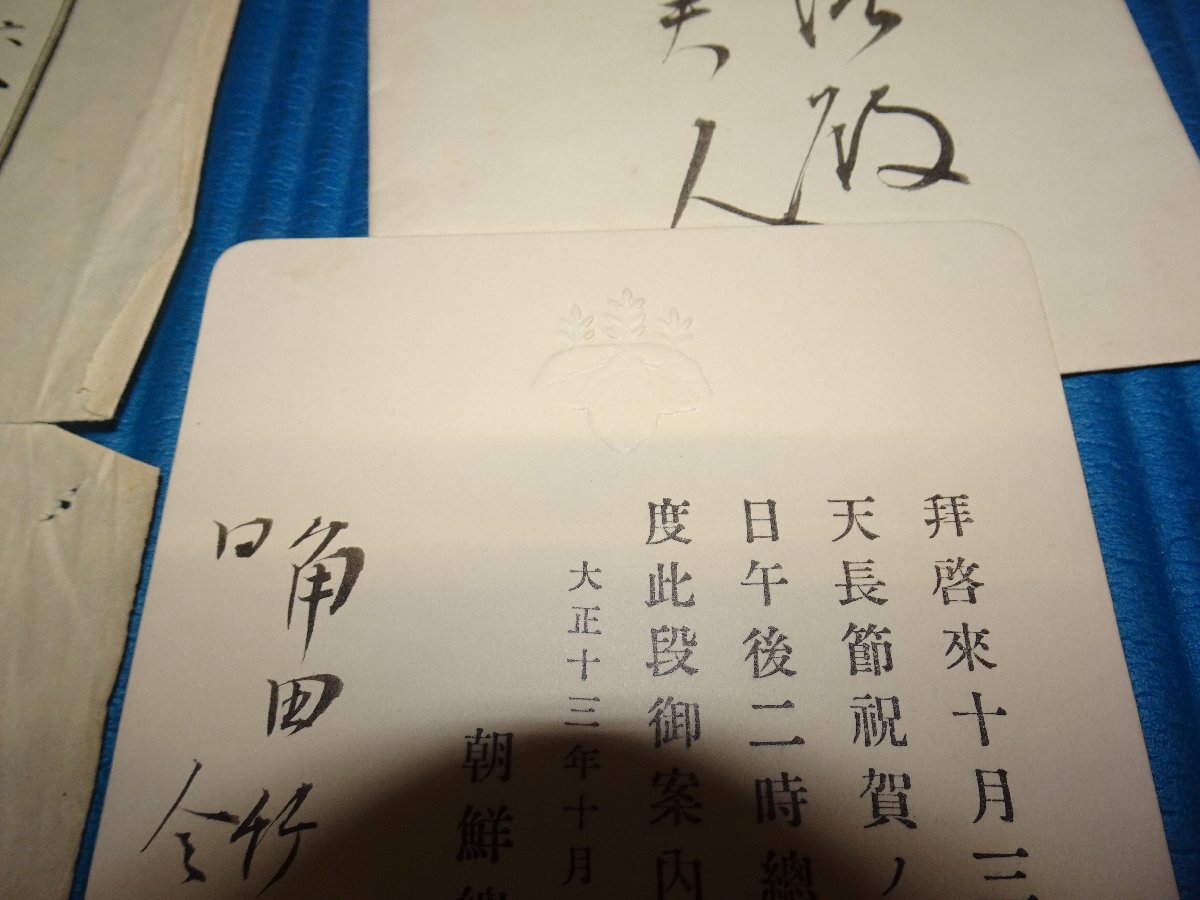 殿
夫人
拝啓來十月三
天長節祝賀ノ
日午後二時總
度此段御案內
大正十三年十月
朝鮮總
角田竹
同令